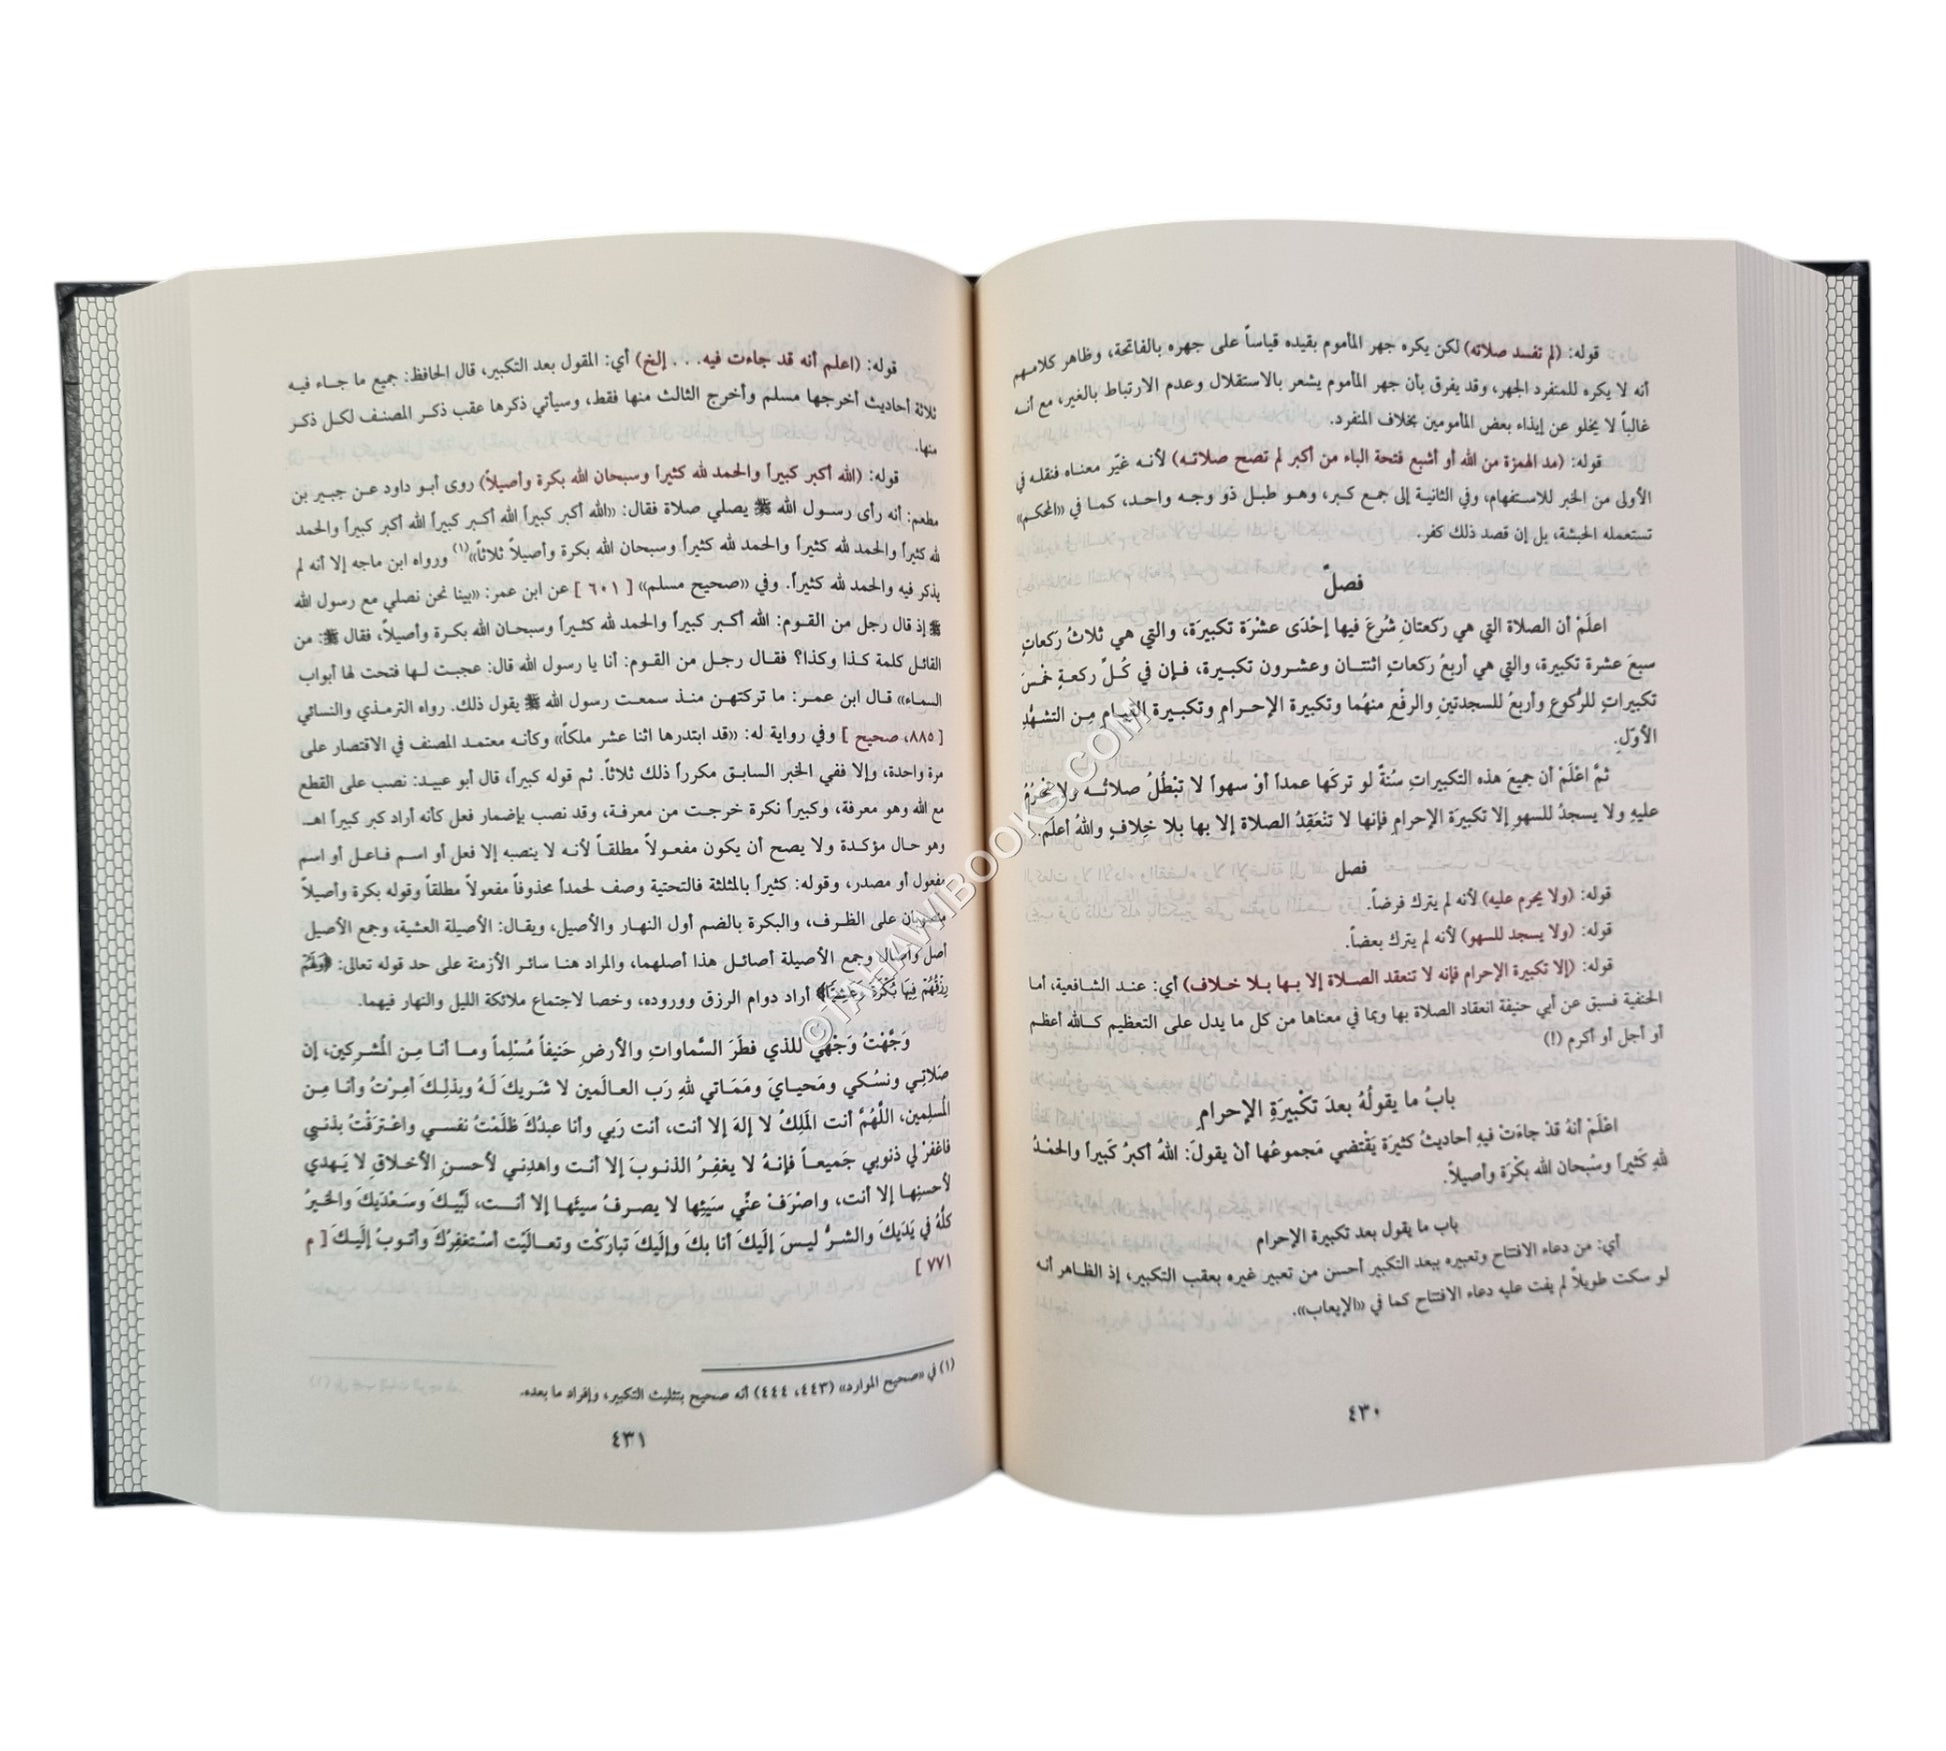 قوله: (لم تفسد صلاته) لكن يكره جهر المأموم بقيده قياساً على جهره بالفاتحة، وظاهر كلامهم
أنه لا يكره للمنفرد الجهر، وقد يفرق بأن جهر المأموم يشعر بالاستقلال وعدم الارتباط بالغير، مع أنه
غالباً لا يخلو عن إيذاء بعض المأمومين بخلاف المنفرد.
قوله: (مد الهمزة من الله أو أشبع فتحة الباء من أكبر لم تصح صلاته) لأنه غيّر معناه فنقله في
الأولى من الخبر للاستفهام، وفي الثانية إلى جمع كبر، وهو طبل ذو وجه واحد، كما في «المحكم»
تستعمله الحبشة، بل إن قصد ذلك كفر.
فصلٌ
اعلَمْ أن الصلاة التي هي ركعتانِ شُرعَ فيها إحْدَى عشْرَة تكبيرَة، والتي هي ثلاثُ ركعاتٍ
سبعَ عشرة تكبيرة، والتي هي أربعُ ركعاتٍ اثنتان وعشرون تكبيرة، فإن في كُلِّ ركعةٍ خمسَ
تكبيراتٍ للرُّكوعِ وأربعُ للسجدتينِ والرفْعِ منهُما وتكبيرة الإحرام وتكبيرة القيام مِن التشهُّدِ
الأوّلِ.
ثمَّ اعْلَمْ أن جميعَ هذه التكبيراتِ سُنةٌ لو تركَها عمداً أوْ سهواً لا تبْطُلُ صلاتُه ولا تحْرُمُ
عليهِ ولا يسجدُ للسهوِ إلا تكبيرَة الإحرامِ فإنها لا تنْعَقِدُ الصلاة إلا بها بلا خِلافٍ واللهُ أعلَم.
فصل
قوله: (ولا يحرم عليه) لأنه لم يترك فرضاً.
قوله: (ولا يسجد للسهو) لأنه لم يترك بعضاً.
قوله: (إلا تكبيرة الإحرام فإنه لا تنعقد الصلاة إلا بها بلا خلاف) أي: عند الشافعية، أما
الحنفية فسبق عن أبي حنيفة انعقاد الصلاة بها وبما في معناها من كل ما يدل على التعظيم كالله أعظم
أو أجل أو أكرم (!)
بابُ ما يقولُهُ بعدَ تكْبيرَةِ الإحرامِ
اعْلَمْ أنهُ قدْ جاءَتْ فيهِ أحاديثُ كثيرَة يَقْتضي مَجموعُها أنْ يقولَ: اللهُ أكبرُ كَبيراً والحمْدُ
للهِ كَثيراً وسُبحان الله بكْرَة وأصيلاً.
باب ما يقول بعد تكبيرة الإحرام
أي: من دعاء الافتتاح وتعبيره ببعد التكبير أحسن من تعبير غيره بعقب التكبير، إذ الظاهر أنه
لو سكت طويلاً لم يفت عليه دعاء الافتتاح كما في «الإيعاب».
٤٣٠
قوله: (اعلم أنه قد جاءت فيه. . . إلخ) أي: المقول بعد التكبير، قال الحافظ: جميع ما جاء فيه
ثلاثة أحاديث أخرجها مسلم وأخرج الثالث منها فقط، وسيأتي ذكرها عقب ذكر المصنف لكل ذكر
منها.
قوله: (الله أكبر كبيراً والحمد لله كثيراً وسبحان الله بكرة وأصيلاً) روى أبو داود عن جبير بن
مطعم: أنه رأى رسول الله ﷺ يصلي صلاة فقال: «الله أكبر كبيراً الله أكبر كبيراً الله أكبر كبيراً والحمد
لله كثيراً والحمد لله كثيراً والحمد لله كثيراً وسبحان الله بكرة وأصيلاً ثلاثاً»(١) ورواه ابن ماجه إلا أنه لم
يذكر فيه والحمد لله كثيراً. وفي «صحيح مسلم» [ ٦٠١ ] عن ابن عمر: «بينا نحن نصلي مع رسول الله
ﷺ إذ قال رجل من القوم: الله أكبر كبيراً والحمد لله كثيراً وسبحان الله بكرة وأصيلاً، فقال ﷺ: من
القائل كلمة كذا وكذا؟ فقال رجل من القوم: أنا يا رسول الله قال: عجبت لها فتحت لها أبواب
السماء» قال ابن عمر: ما تركتهن منذ سمعت رسول الله ﷺ يقول ذلك. رواه الترمذي والنسائي
[ ٨٨٥، صحيح ] وفي رواية له: «قد ابتدرها اثنا عشر ملكاً» وكأنه معتمد المصنف في الاقتصار على
مرة واحدة، وإلا ففي الخبر السابق مكرراً ذلك ثلاثاً. ثم قوله كبيراً، قال أبو عبيد: نصب على القطع
مع الله وهو معرفة، وكبيراً نكرة خرجت من معرفة، وقد نصب بإضمار فعل كأنه أراد كبر كبيراً اهـ
وهو حال مؤكدة ولا يصح أن يكون مفعولاً مطلقاً لأنه لا ينصبه إلا فعل أو اسم فاعل أو اسم
مفعول أو مصدر، وقوله: كثيراً بالمثلثة فالتحتية وصف لحمداً محذوفاً مفعولاً مطلقاً وقوله بكرة وأصيلاً
منصوبان على الظرف، والبكرة بالضم أول النهار والأصيل، ويقال: الأصيلة العشية، وجمع الأصيل
أصل وآصال وجمع الأصيلة أصائل هذا أصلهما، والمراد هنا سائر الأزمنة على حد قوله تعالى: ﴿وَلَهُمْ
رِزْقُهُمْ فِيهَا بُكْرَةً وَعَشِيًّا﴾ أراد دوام الرزق ووروده، وخصا لاجتماع ملائكة الليل والنهار فيهما.
وَجَّهْتُ وَجْهيَ للذي فطَرَ السَّماواتِ والأرضِ حَنيفاً مُسْلِماً وما أنا مِن المُشركِين، إن
صَلاتِي ونسُكي ومَحيايَ ومَمَاتي للهِ رَب العالَمين لا شَريكَ لَهُ وبذلِكَ أمِرْتُ وأنا مِن
المُسلِمين، اللَّهُمَّ أنت المَلِكُ لا إلهَ إلا أنت، أنت رَبي وأنا عبدُكَ ظلَمْتُ نفسي واعْترَفْتُ بذنبي
فاغفرْ لي ذنوبي جَميعاً فإنهُ لا يغفِرُ الذنوبَ إلا أنت واهدِني لأحسنِ الأخلاقِ لا يَهدي
لأحسنِها إلا أنت، واصْرَفْ عنِّي سَيَئِها لا يصرفُ سيئَها إلا أنت، لَبَّيكَ وسَعْدَيكَ والخيرُ
كلُّهُ في يَدَيكَ والشرُّ ليسَ إلَيكَ أنا بكَ وإلَيكَ تبارَكْت وتعالَيْت أسْتغفِرُكَ وأتوبُ إلَيكَ [ م
٧٧١ ]
(١) في «صحيح الموارد» (٤٤٣، ٤٤٤) أنه صحيح بتثليث التكبير، وإفراد ما بعده.
٤٣١
©TAHAWIBOOKS.COM